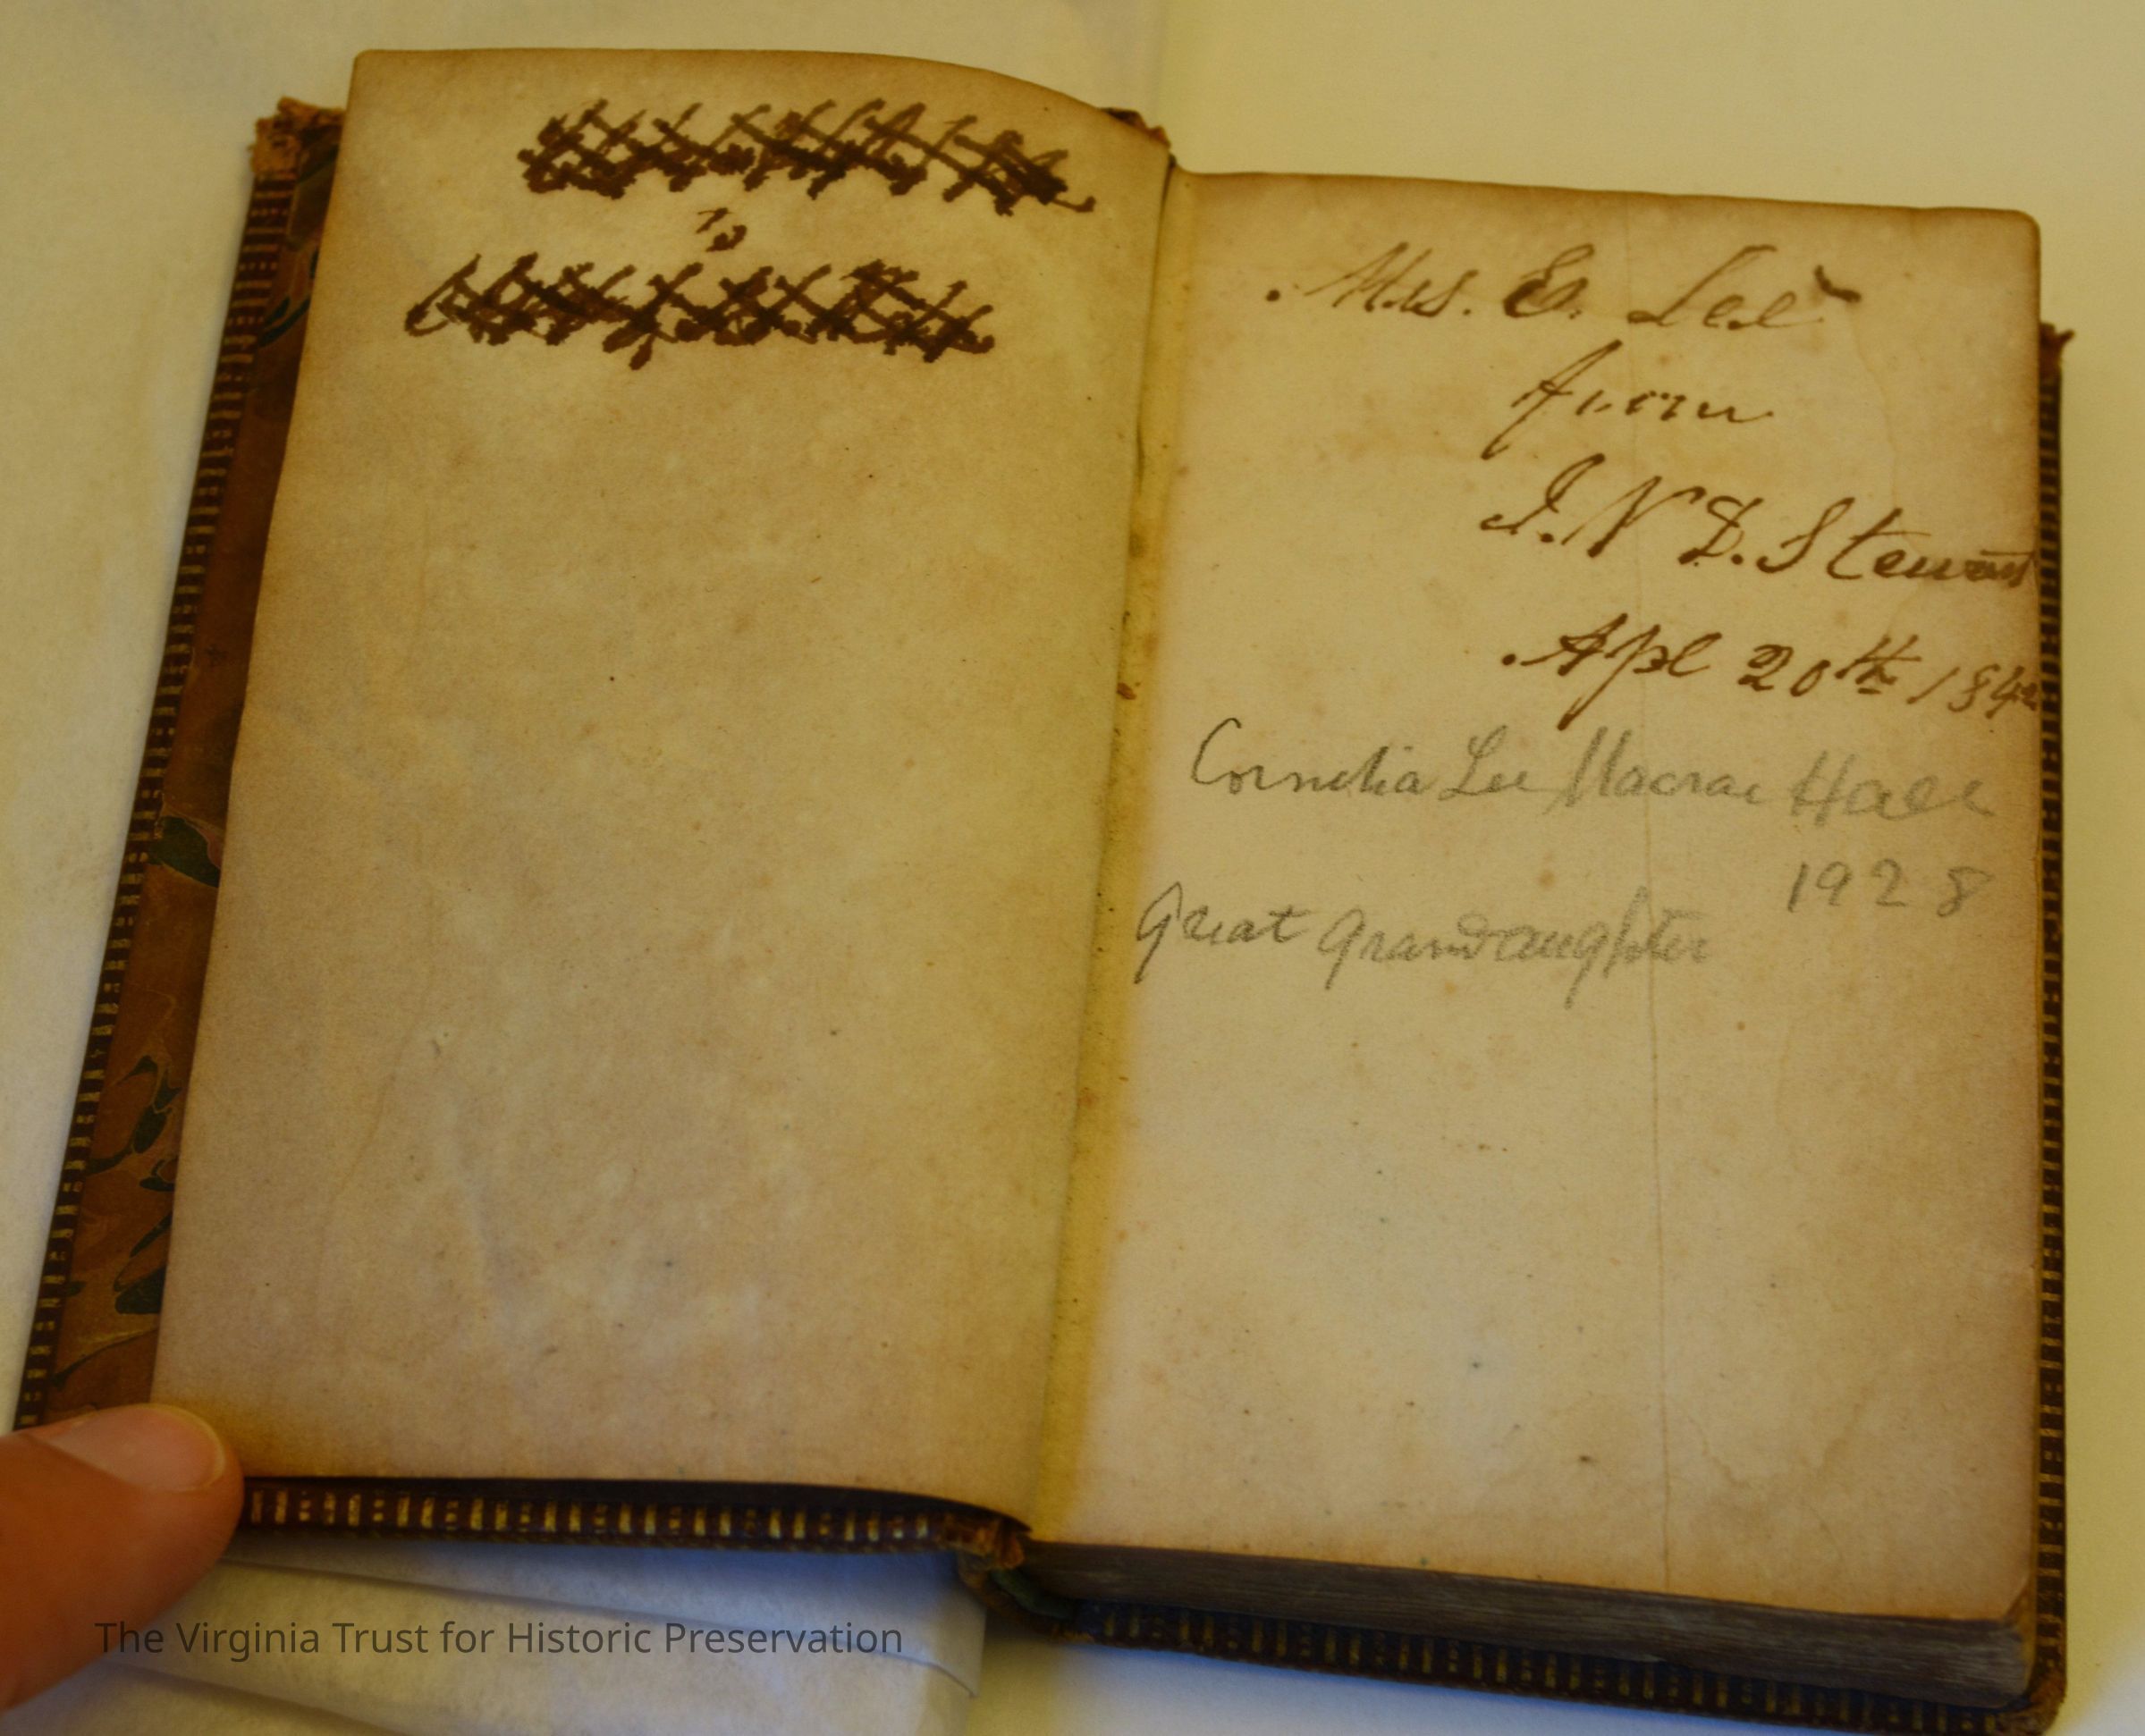 to
Mrs. E. Lee
from
J. N D. Stewart
Apl 20th 1842
Cornelia Lee Macrae Hall
1928
Great Grandaughter
The Virginia Trust for Historic Preservation